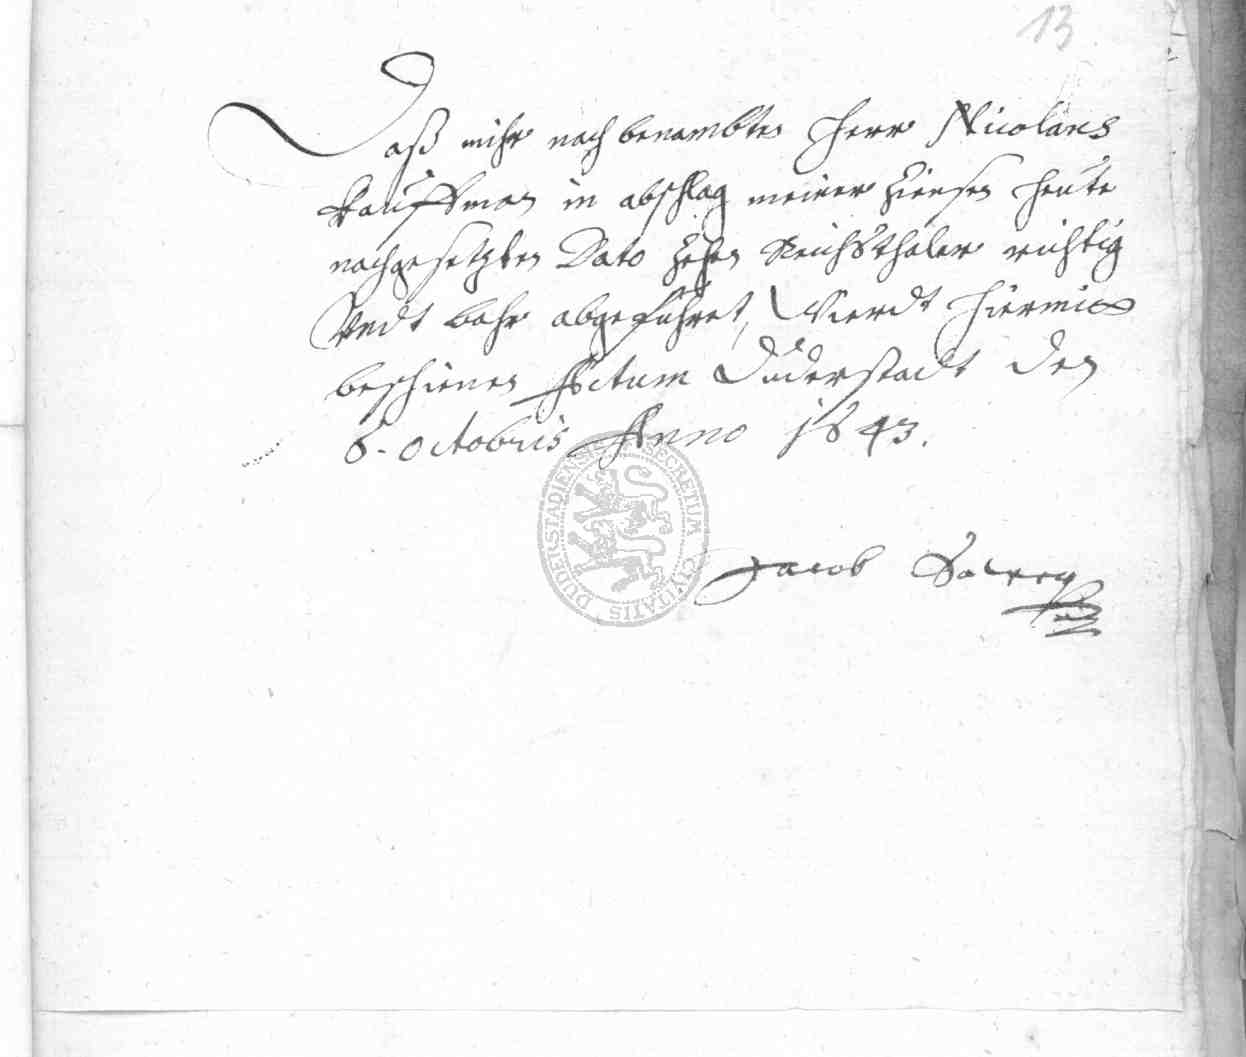 13
Daß mihr nachbenambter Herr Nicolaus
Kauffman in abschlag meiner Ziensen heute
nachgesetzten Dato Zehen Reichsthaler richtig
Vndt bahr abgeführet, Wierdt hiermitt
beschienen Actum Duderstadt den
6. Octobris Anno 1643.
Jacob
DUDERSTADIENSIS SECRETUM CIVITATIS